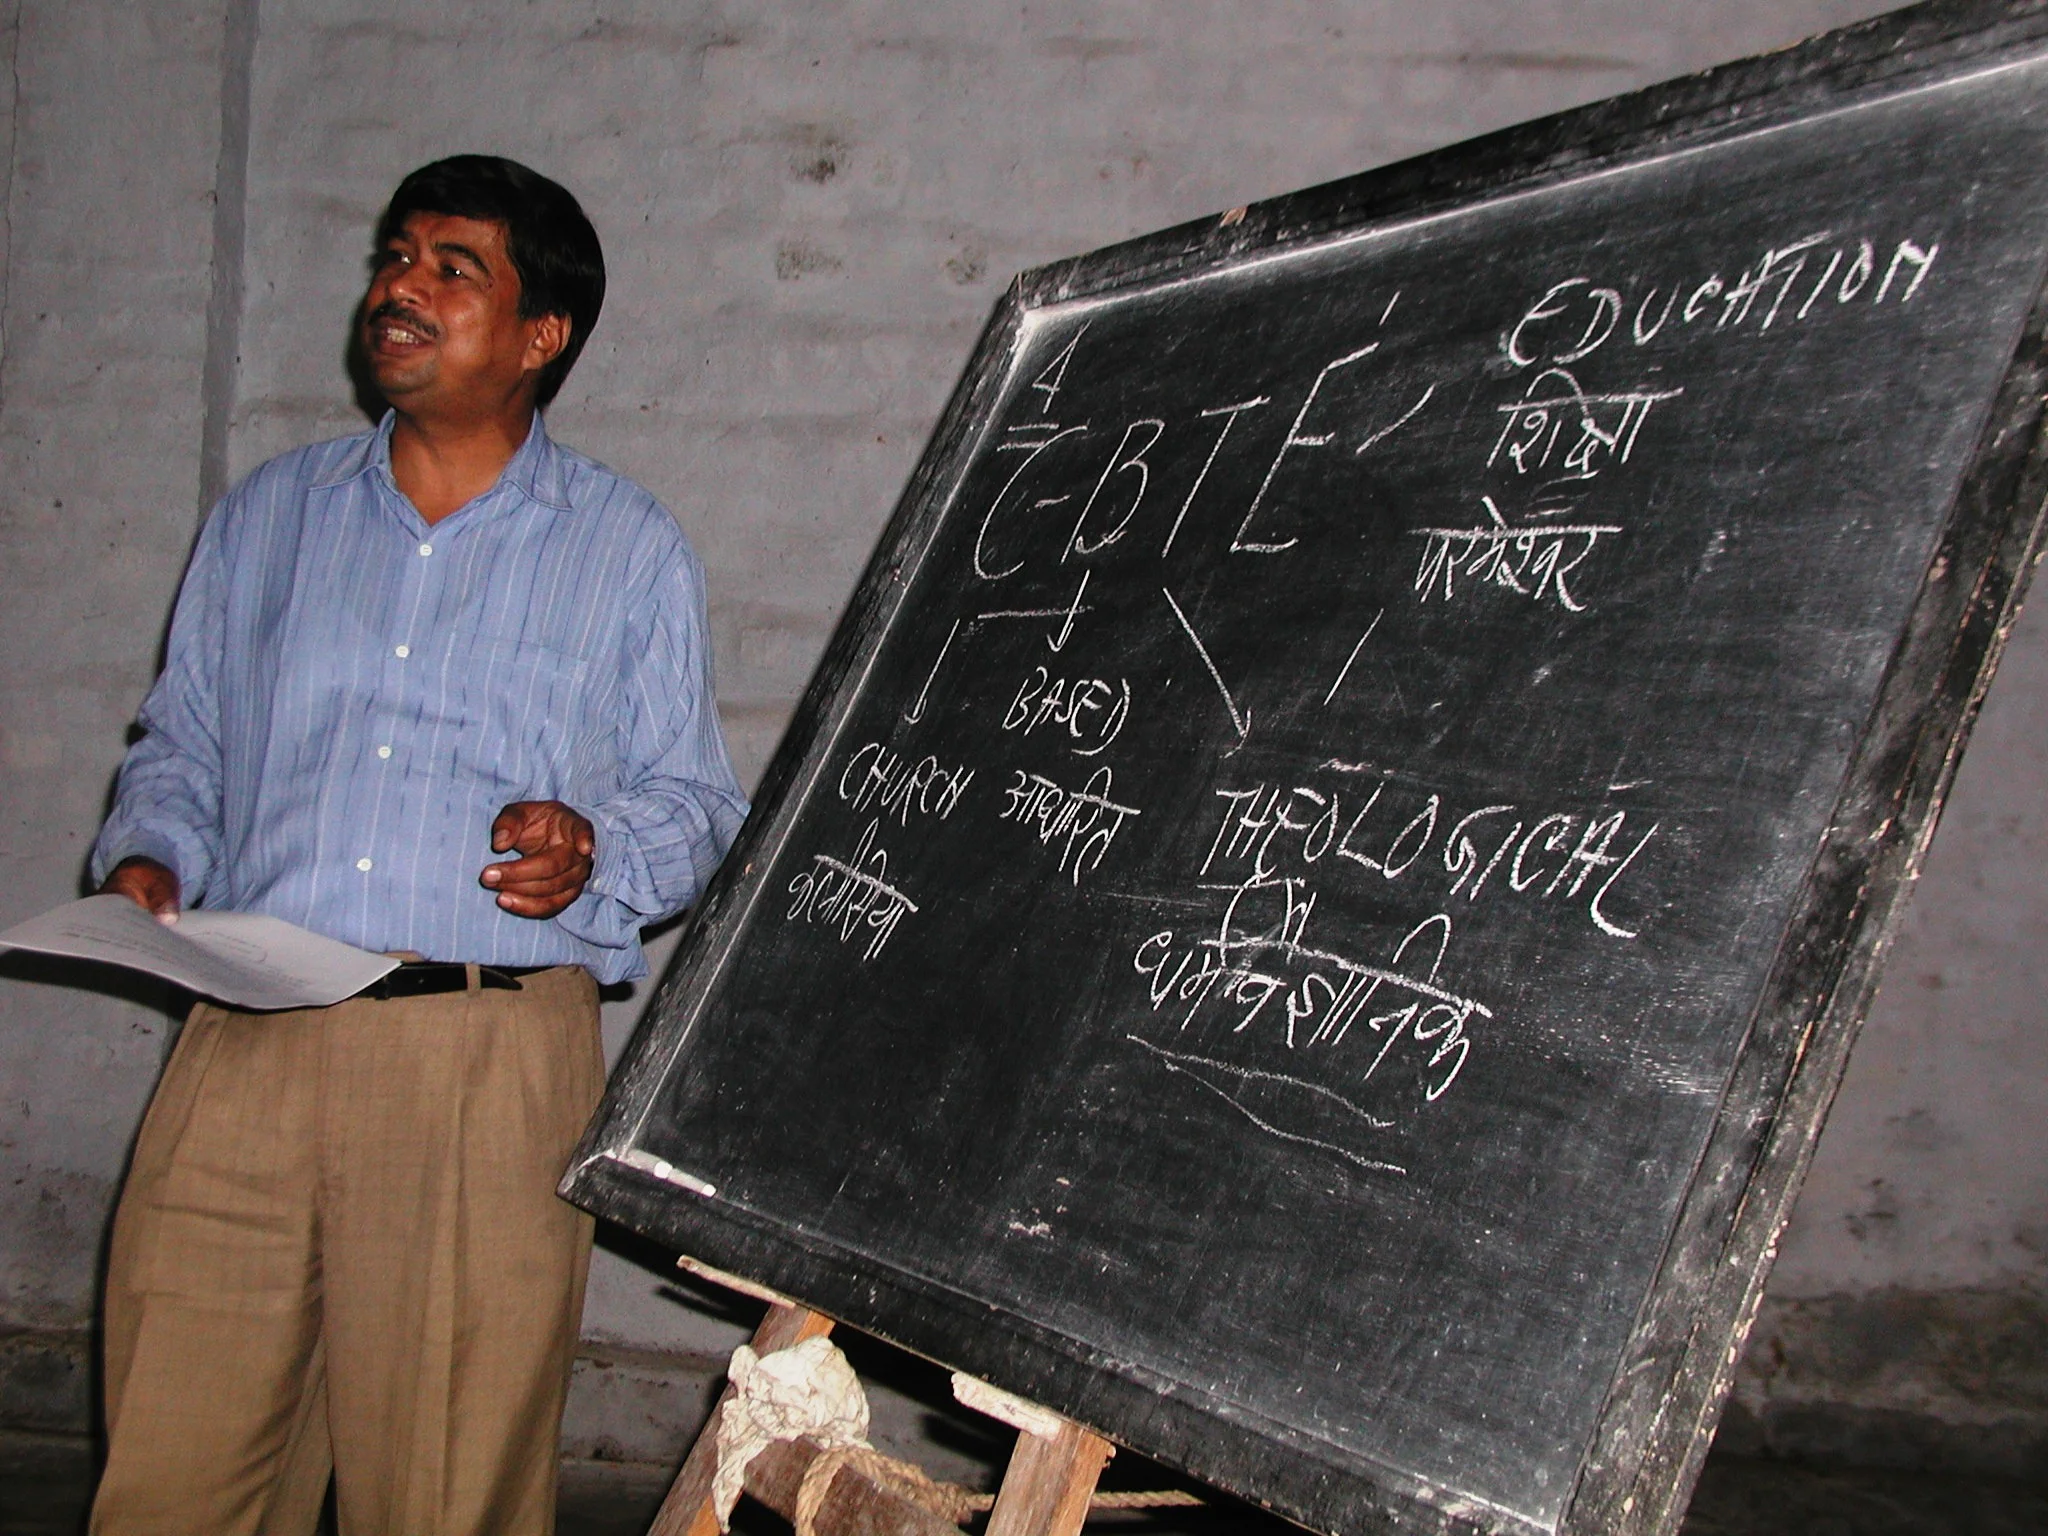 4
C-BTE
EDUCATION
शिक्षा
परमेश्वर
BASED
CHURCH
आधारित
कलीसिया
THEOLOGICAL